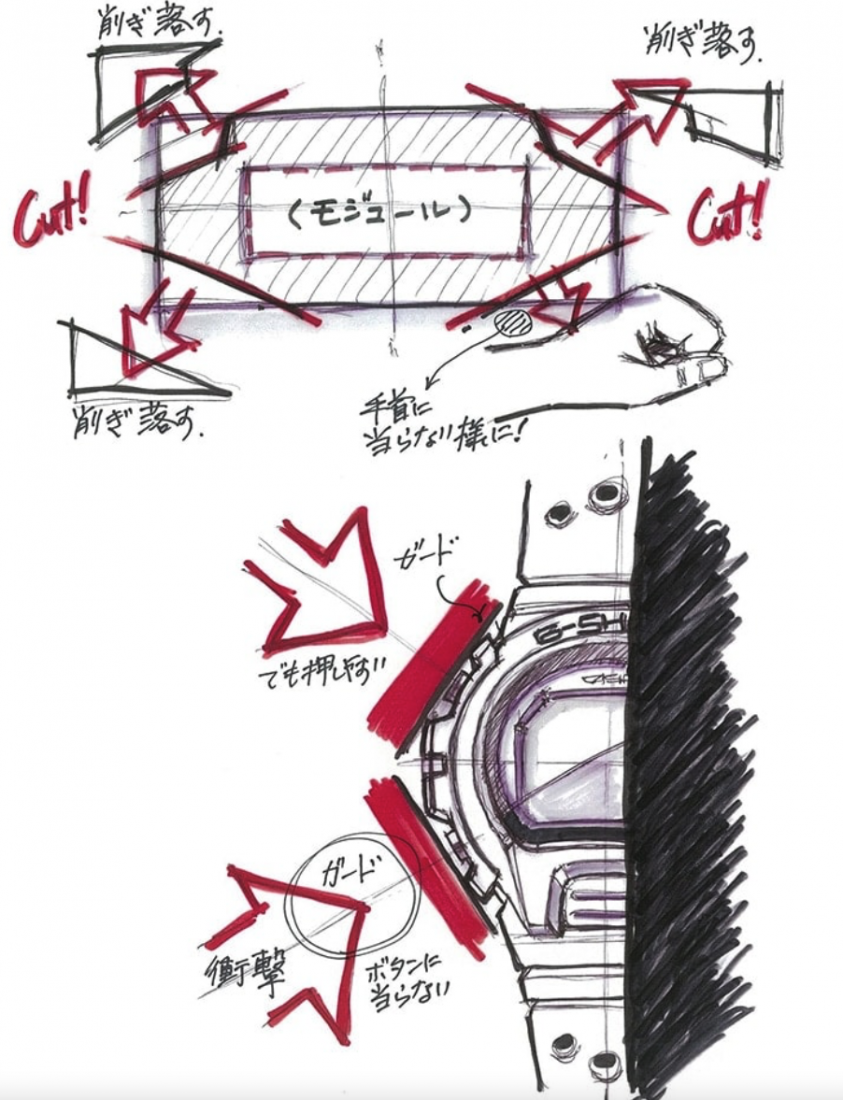 削ぎ落す.
削ぎ落す.
Cut!
(モジュール)
Cut!
削ぎ落す.
手首に
当らない様に!
ガード
G-SH
でも押しやすい
ガード
衝撃
ボタンに
当らない